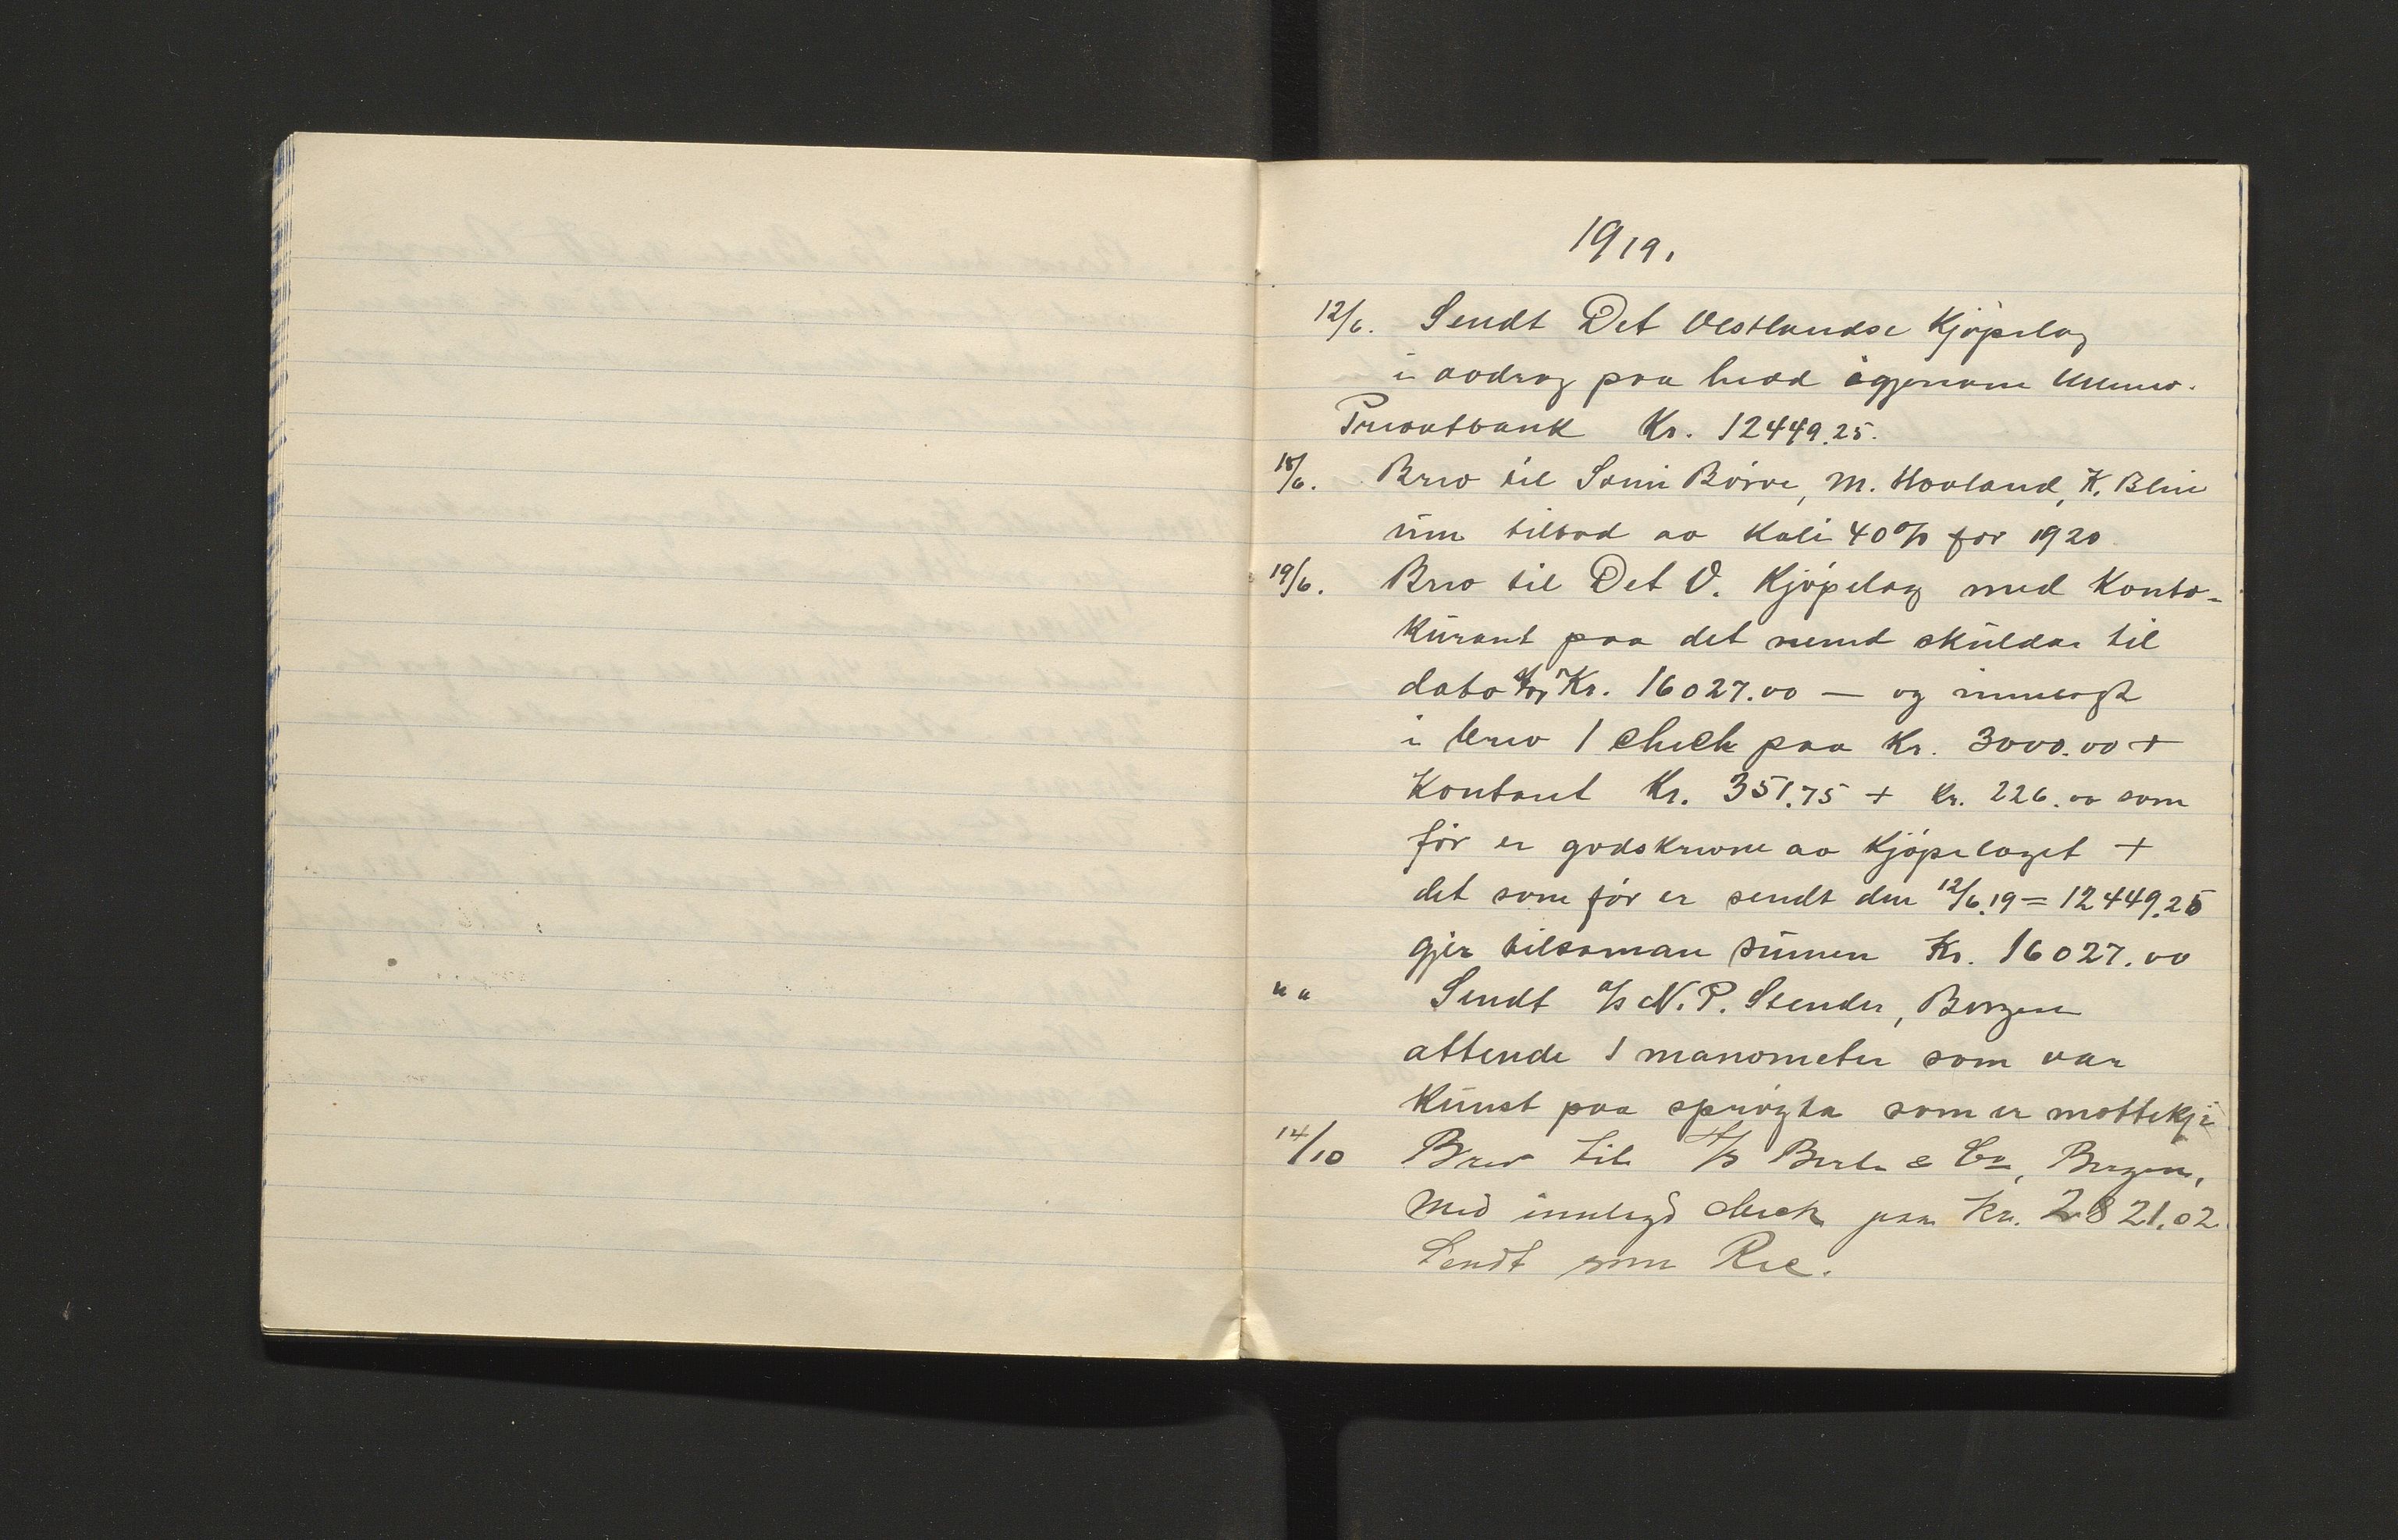 1919.
12/6. Sendt Det Vestlandse Kjøpelag
i avdrag paa head igjenom Ullensv.
Privatbank Kr. 12449.25.
18/6. Brev til Sami Børve, M. Hovland, K. Blie
um tilbod av Kali 40% for 1920
19/6. Brev til Det V. Kjøpelag med Konto-
kurant paa det me skuldar til
dato Kr. 16027.00 — og innlagt
i brev 1 check paa Kr. 3000.00 +
Kontant Kr. 351.75 + Kr. 226.00 som
før er godskrivne av Kjøpelaget +
det som før er sendt den 12/6.19 = 12449.25
gjer tilsaman sumen Kr. 16027.00
" " Sendt a/s N. P. Stender, Bergen
attende 1 manometer som var
kunst paa sprøyta som er mottekji
14/10 Brev til A/S Berle & Co, Bergen,
med innlagd check paa Kr. 2821.02
Sendt som Rec.